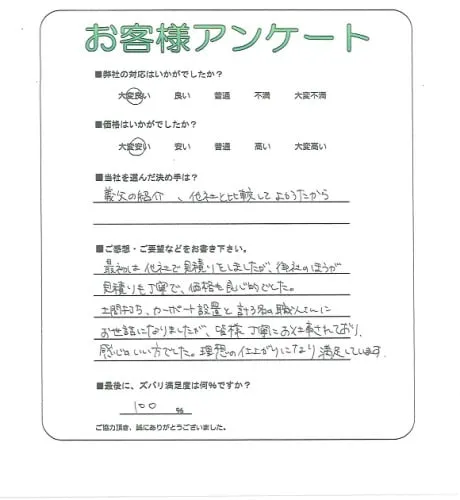 お客様アンケート
■弊社の対応はいかがでしたか？
大変良い 良い 普通 不満 大変不満
■価格はいかがでしたか？
大変安い 安い 普通 高い 大変高い
■当社を選んだ決め手は？
義父の紹介、他社と比較してよかったから
■ご感想・ご要望などをお書き下さい。
最初は他社で見積りをしましたが、御社のほうが
見積りも丁寧で、価格も良心的でした。
土間打ち、カーポート設置と計3名の職人さんに
お世話になりましたが、皆様丁寧にお仕事されており、
感じのいい方でした。理想の仕上がりになり満足しています。
■最後に、ズバリ満足度は何％ですか？
100 ％
ご協力頂き、誠にありがとうございました。